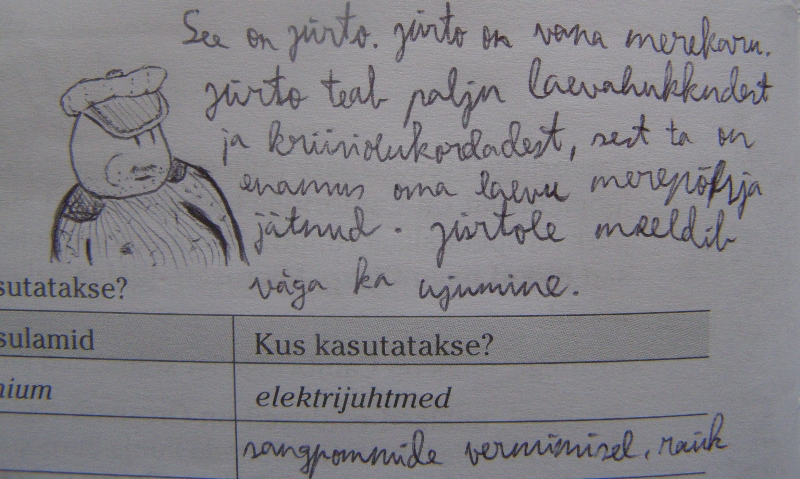 See on jürto. jürto on vana merekaru.
jürto teab palju laevahukkudest
ja kriisiolukordadest, sest ta on
enamus oma laevu merepõhja
jätnud. jürtole meeldib
väga ka ujumine.
sutatakse?
sulamid Kus kasutatakse?
nium elektrijuhtmed
sangpommide vermimisel, rauk